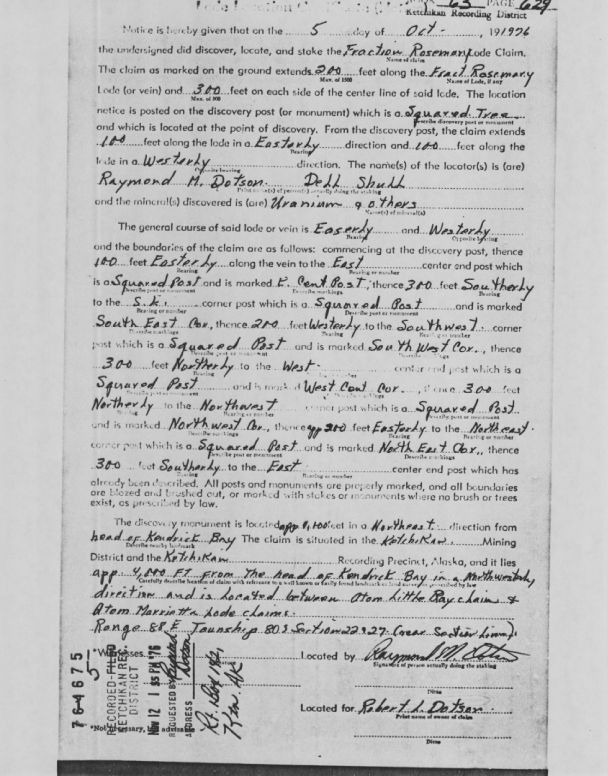 Lode Location 63 PAGE 629
Ketchikan Recording District
Notice is hereby given that on the 5 day of Oct , 191976
the undersigned did discover, locate, and stake the Fraction Rosemary Lode Claim.
Name of claim
The claim as marked on the ground extends 200 feet along the Fract Rosemary
Max. of 1500 Name of Lode, if any
Lode (or vein) and 300 feet on each side of the center line of said lode. The location
Max. of 300
notice is posted on the discovery post (or monument) which is a Squared Tree
Describe discovery post or monument
and which is located at the point of discovery. From the discovery post, the claim extends
100 feet along the lode in a Easterly direction and 100 feet along the
Bearing
lode in a Westerly direction. The name(s) of the locator(s) is (are)
Opposite bearing
Raymond M. Dotson Dell Shull
Print name(s) of person(s) actually doing the staking
and the mineral(s) discovered is (are) Uranium & others
Name(s) of mineral(s)
The general course of said lode or vein is Easerly and Westerly
Bearing Opposite bearing
and the boundaries of the claim are as follows: commencing at the discovery post, thence
100 feet Easterly along the vein to the East center end post which
Bearing Bearing or number
is a Squared Post and is marked E. Cent Post, thence 300 feet Southerly
Describe post or monument Describe markings Bearing
to the S.E. corner post which is a Squared Post and is marked
Bearing or number Describe post or monument
South East Cor, thence 200 feet Westerly to the Southwest corner
Describe markings Bearing Bearing or number
post which is a Squared Post and is marked South West Cor., thence
Describe post or monument
300 feet Northerly to the West center end post which is a
Bearing Bearing or number
Squared Post and is marked West Cent Cor., thence 300 feet
Describe post or monument Describe markings
Northerly to the Northwest corner post which is a Squared Post
Bearing Bearing or number Describe post or monument
and is marked Northwest Cor., thence app 200 feet Easterly to the Northeast
Describe markings Bearing Bearing or number
corner post which is a Squared Post and is marked North East Cor., thence
Describe post or monument Describe markings
300 feet Southerly to the East center end post which has
Bearing Bearing or number
already been described. All posts and monuments are properly marked, and all boundaries
are blazed and brushed out, or marked with stakes or monuments where no brush or trees
exist, as prescribed by law.
The discovery monument is located app feet in a Northeast direction from
head of Kendrick Bay The claim is situated in the Ketchikan Mining
Describe nearby landmark
District and the Ketchikan Recording Precinct, Alaska, and it lies
app. 4,000 FT from The head of Kendrick Bay in a Northwesterly
direction and is Located between Atom Little Roy claim &
Atom Marietta Lode claims.
Range 88 E Township 80 S Section 22 & 27
*Witnesses Located by Raymond M. Dotson
Signature of person actually doing the staking
Ditto
Located for Robert L. Dotson
Print name of owner of claim
Ditto
*Not necessary, advisable
76-4675
RECORDED-FILED
KETCHIKAN REC.
DISTRICT
NOV 12 1 55 PM '76
REQUESTED BY Raymond Dotson
ADDRESS